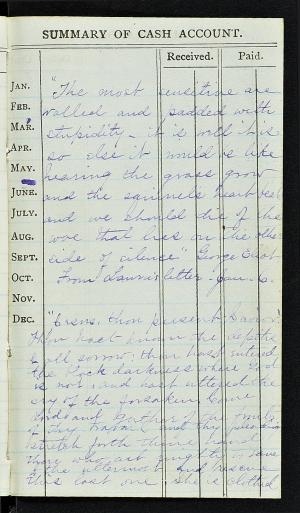 SUMMARY OF CASH ACCOUNT.
Received. Paid.
JAN.
FEB.
MAR.
APR.
MAY.
JUNE.
JULY.
AUG.
SEPT.
OCT.
NOV.
DEC.
"The most sensitive are
walled and padded with
stupidity - it is well it is
so else it would be like
hearing the grass grow
and the squirrels heart beat
and we should die of the
woe that lies on the other
side of silence" George Eliot
From letter - Jan. 6.
"Jesus, thou present Saviour
Thou hast known the depths
of all sorrow: thou hast entered
the black darkness where God
is not, and hast uttered the
cry of the forsaken. Come
Lord and gather of the fruits
of thy travail and thy pleading
stretch forth thine hand
thou who art mighty to save
to the uttermost and rescue
this lost one she is clothed